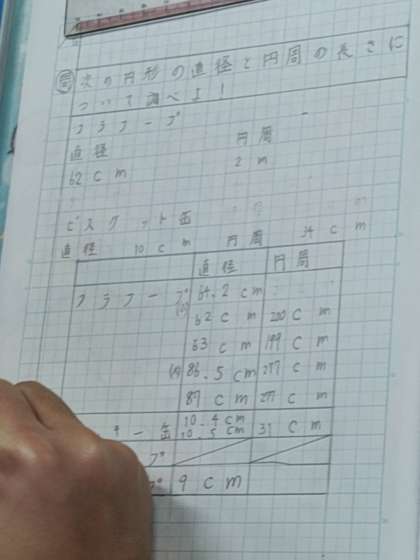 問 次の円形の直径と円周の長さに
ついて調べよ!
フラフープ
直径 円周
62cm 2m
ビスケット缶
直径 10cm 円周 34cm
直径 円周
フラフープ 64.2cm
(小) 62cm 200cm
63cm 199cm
(大) 86.5cm 277cm
87cm 277cm
キー缶 10.4cm
10.5cm 31cm
プ
プ 9cm